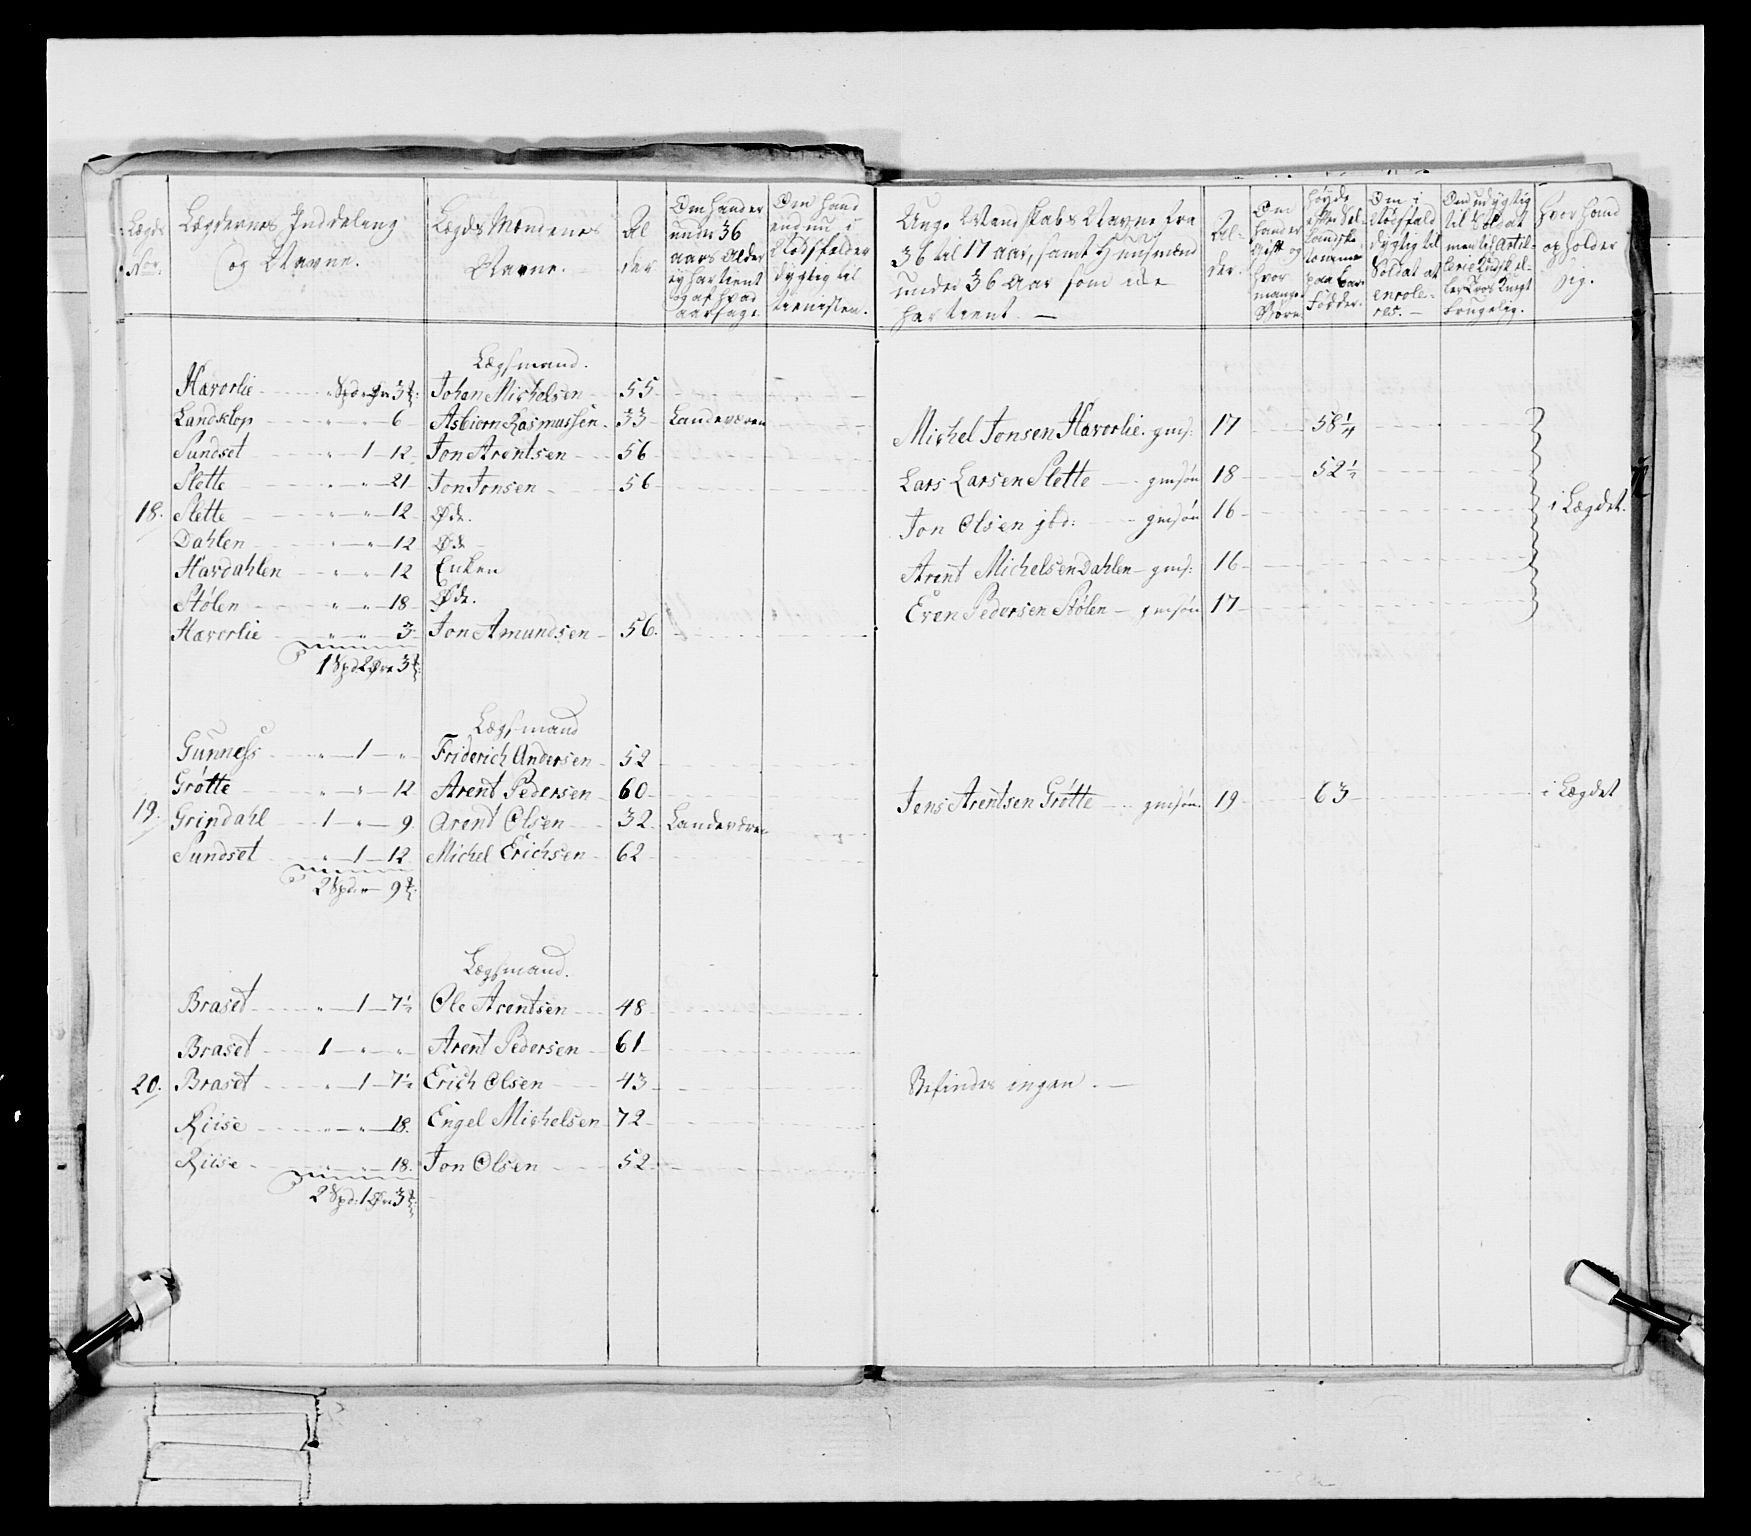 Lægds Nor:
Lægdernes Inddeling og Navne.
Lægds Mændenes Navne.
Alder
Om hand er under 36 aars Alder ey har tient og af hvad aarsage
Om hand endnu i Nødsfald er dygtig til tienesten.
Unge Mandskabs Navne fra 36 til 17 aar, samt Huusmænd under 36 Aar som icke har tient. —
Alder.
Om hand er gift og hvor mange Børn
Om i Nødsfald dygtig til Soldat at enrolleres. —
Om udygtig til Soldat men til Artillerie Kudsk eller Tros Knegt brugelig.
Hvor hand opholder sig.
Lægsmand.
Havorlie - 3 Johan Michelsen - 55
Landstop - " - " - 6 Asbiorn Rasmussen - 33 Landeværen
Michel Jonsen Havorlie - gms: 17 58 1/4
Sundset - " - 1 - 12 Jon Arentsen - 56
Slette - " - " - 21 Jon Jonsen - 56
Lars Larsen Slette - gmsøn 18 52 1/2
18. Slette - " - " - 12 Øde.
Jon Olsen ibd: - gmsøn 16 i Lægdet.
Dahlen - " - " - 12 Øde
Hardahlen - " - " - 12 Enken
Arent Michelsen Dahlen - gms: 16
Stølen - " - " - 18 Øde.
Even Pedersen Stølen - gmsøn 17
Havorlie - " - " - 3 Jon Amundsen - 56.
1 Spd 2 Ort 3
Lægsmand
Gunness - " - 1 - " Friderich Andersen - 52
Grøtte - " - " - 12 Arent Pedersen - 60
Jens Arentsen Grøtte - gmsøn. 19 63 i Lægdet
19. Grindahl - 1 - " - 9 Arent Olsen - 32 Landeværen
Sundset - " - 1 - 12 Michel Erichsen - 62
2 Spd " - 9
Lægsmand.
Braset - " - 1 - 7 1/2 Ole Arentsen - 48
Braset - 1 - " - " Arent Pedersen - 61
20. Braset - " - 1 - 7 1/2 Erich Olsen - 43
Befindes ingen. —
Riise - " - " - 18. Engel Michelsen - 72
Riise - " - " - 18. Jon Olsen - 52
2 Spd: 1 Ort 3